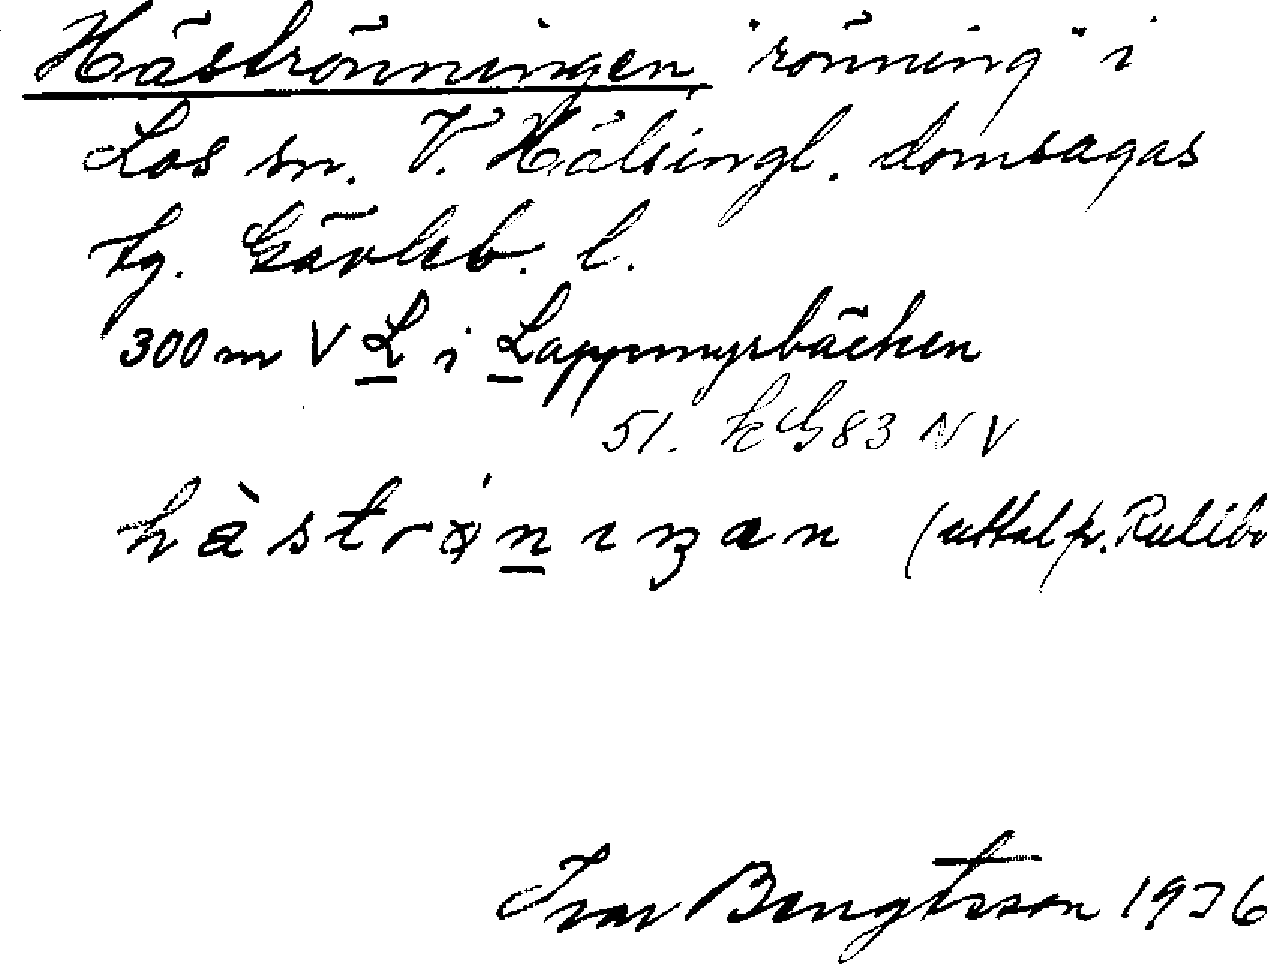 Häströnningen, "rönning" i
Los sn. V. Hälsingl. domsagas
tg. Gävleb. l.
300 m V L i Lappmyrbäcken
51. k G83 NV
hà̀strøníŋan (uttal fr. Rullbo
Ivar Bengtsson 1936